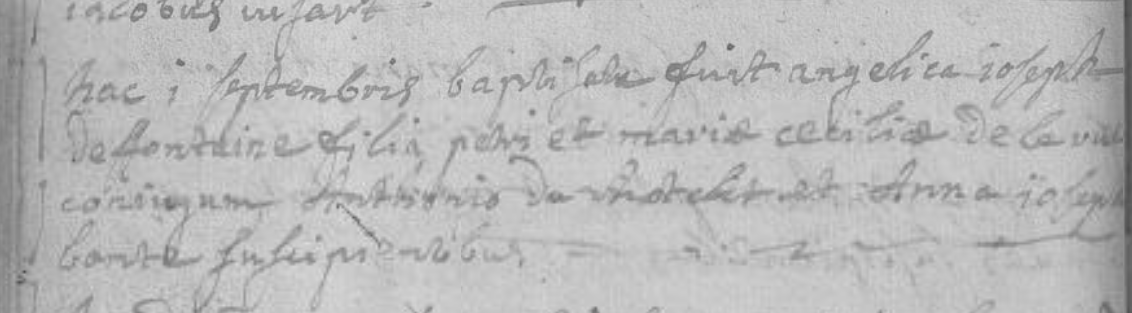 iacobus infart
hac i septembris baptisata fuit angelica ioseph
defontaine filia petri et mariæ ceciliæ De le
coniugum Anthonio du et Anna ioseph
bonte suscipientibus